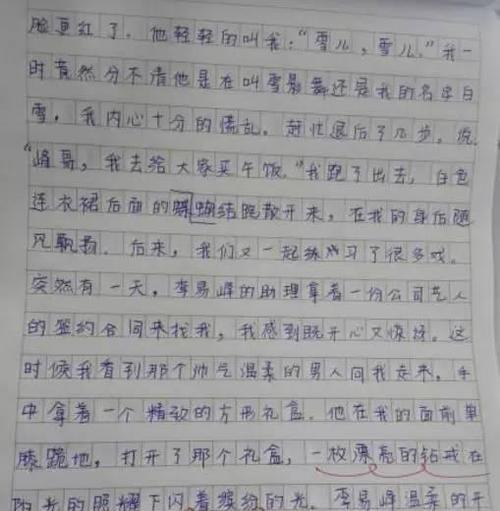 脸更红了。他轻轻的叫我："雪儿，雪儿。"我一
时竟然分不清他是在叫雪影舞还是我的名字白
雪，我内心十分的慌乱。赶忙退后了几步，说，
"峰哥，我去给大家买午饭。"我跑了出去，白色
连衣裙后面的蝴蝶结脱散开来，在我的身后随
风飘扬。后来，我们又一起练习了很多戏。
突然有一天，李易峰的助理拿着一份公司艺人
的签约合同来找我，我感到既开心又惊讶。这
时候我看到那个帅气温柔的男人向我走来，手
中拿着一个精致的方形礼盒。他在我的面前单
膝跪地，打开了那个礼盒，一枚漂亮的钻戒在
阳光的照耀下闪着缤纷的光。李易峰温柔的开